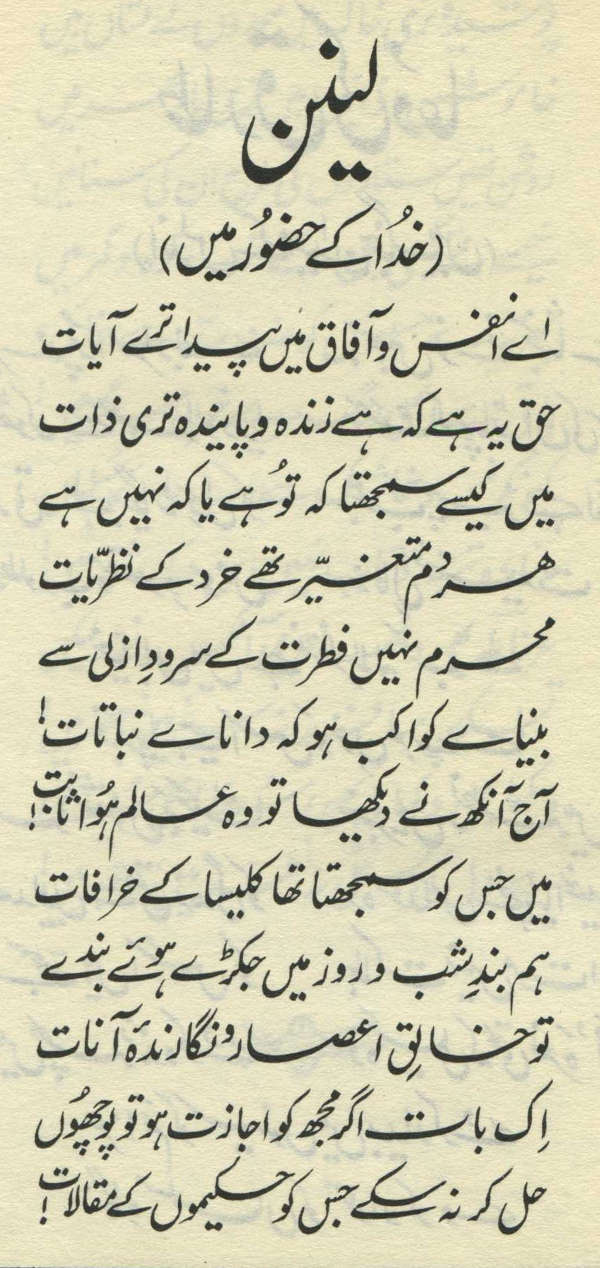 لینن
(خدُا کے حضوُر میں)
اے انفس و آفاق میں پیدا ترے آیات
حق یہ ہے کہ ہے زندہ و پایندہ تری ذات
میں کیسے سمجھتا کہ توُ ہے یا کہ نہیں ہے
ہر دم متغیّر تھے خرد کے نظریّات
محرم نہیں فطرت کے سرودِ ازلی سے
بیناے کواکب ہو کہ داناے نباتات!
آج آنکھ نے دیکھا تو وہ عالم ہوُا ثابت!
میں جس کو سمجھتا تھا کلیسا کے خرافات
ہم بندِ شب و روز میں جکڑے ہوئے بندے
تو خالقِ اعصار و نگارندۂ آنات
اِک بات اگر مجھ کو اجازت ہو تو پوچھوُں
حل کر نہ سکے جس کو حکیموں کے مقالات!